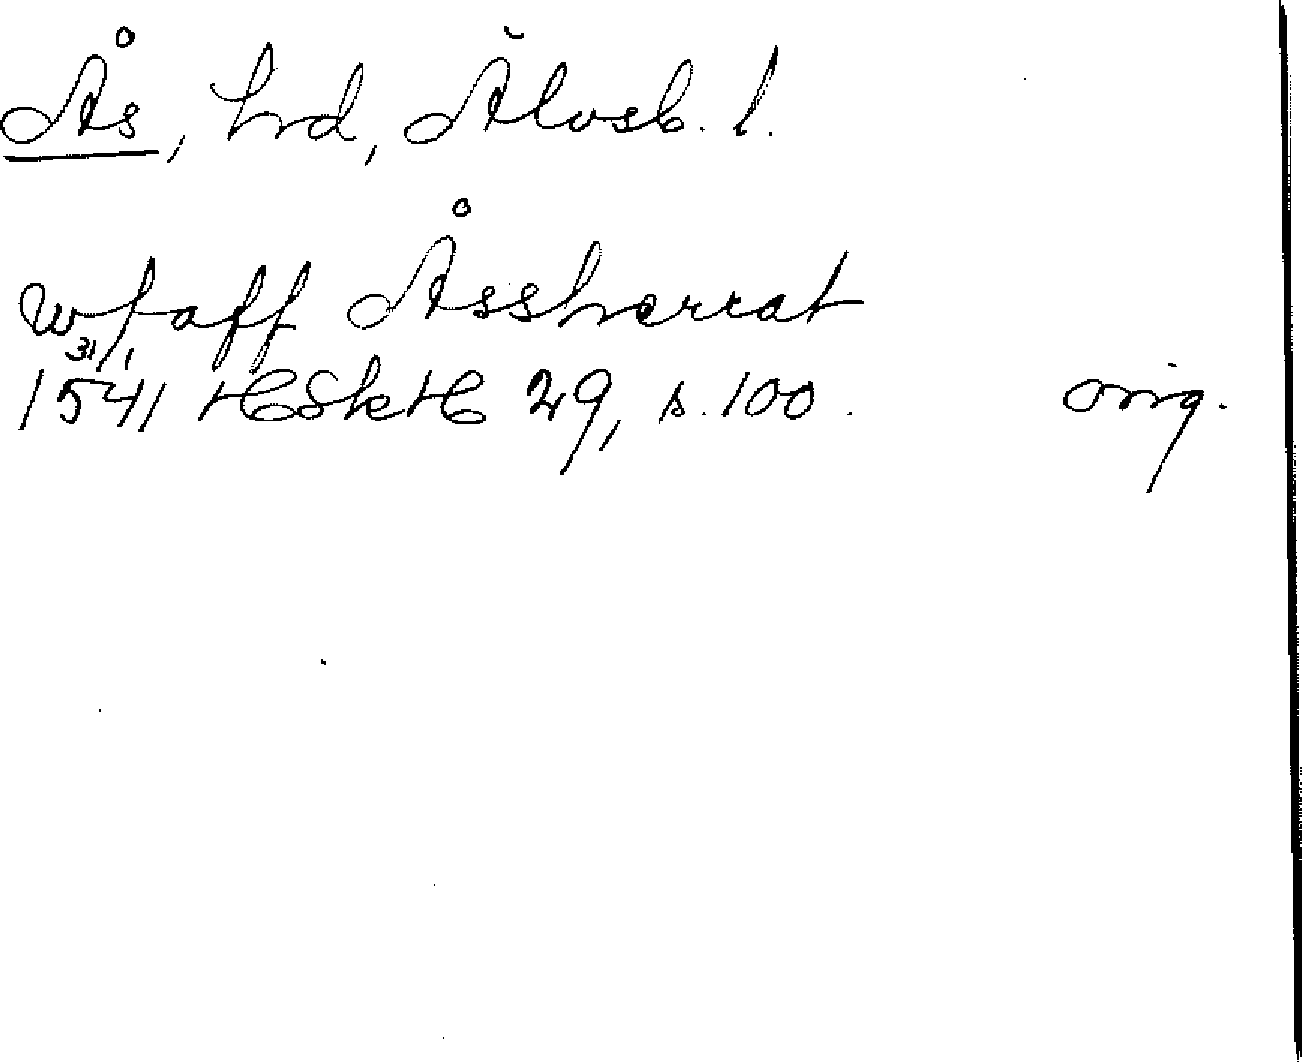 Ås, hrd, Älvsb. l.
wtaff Åssherrat
31/1
1541 HSkH 29, s. 100. orig.